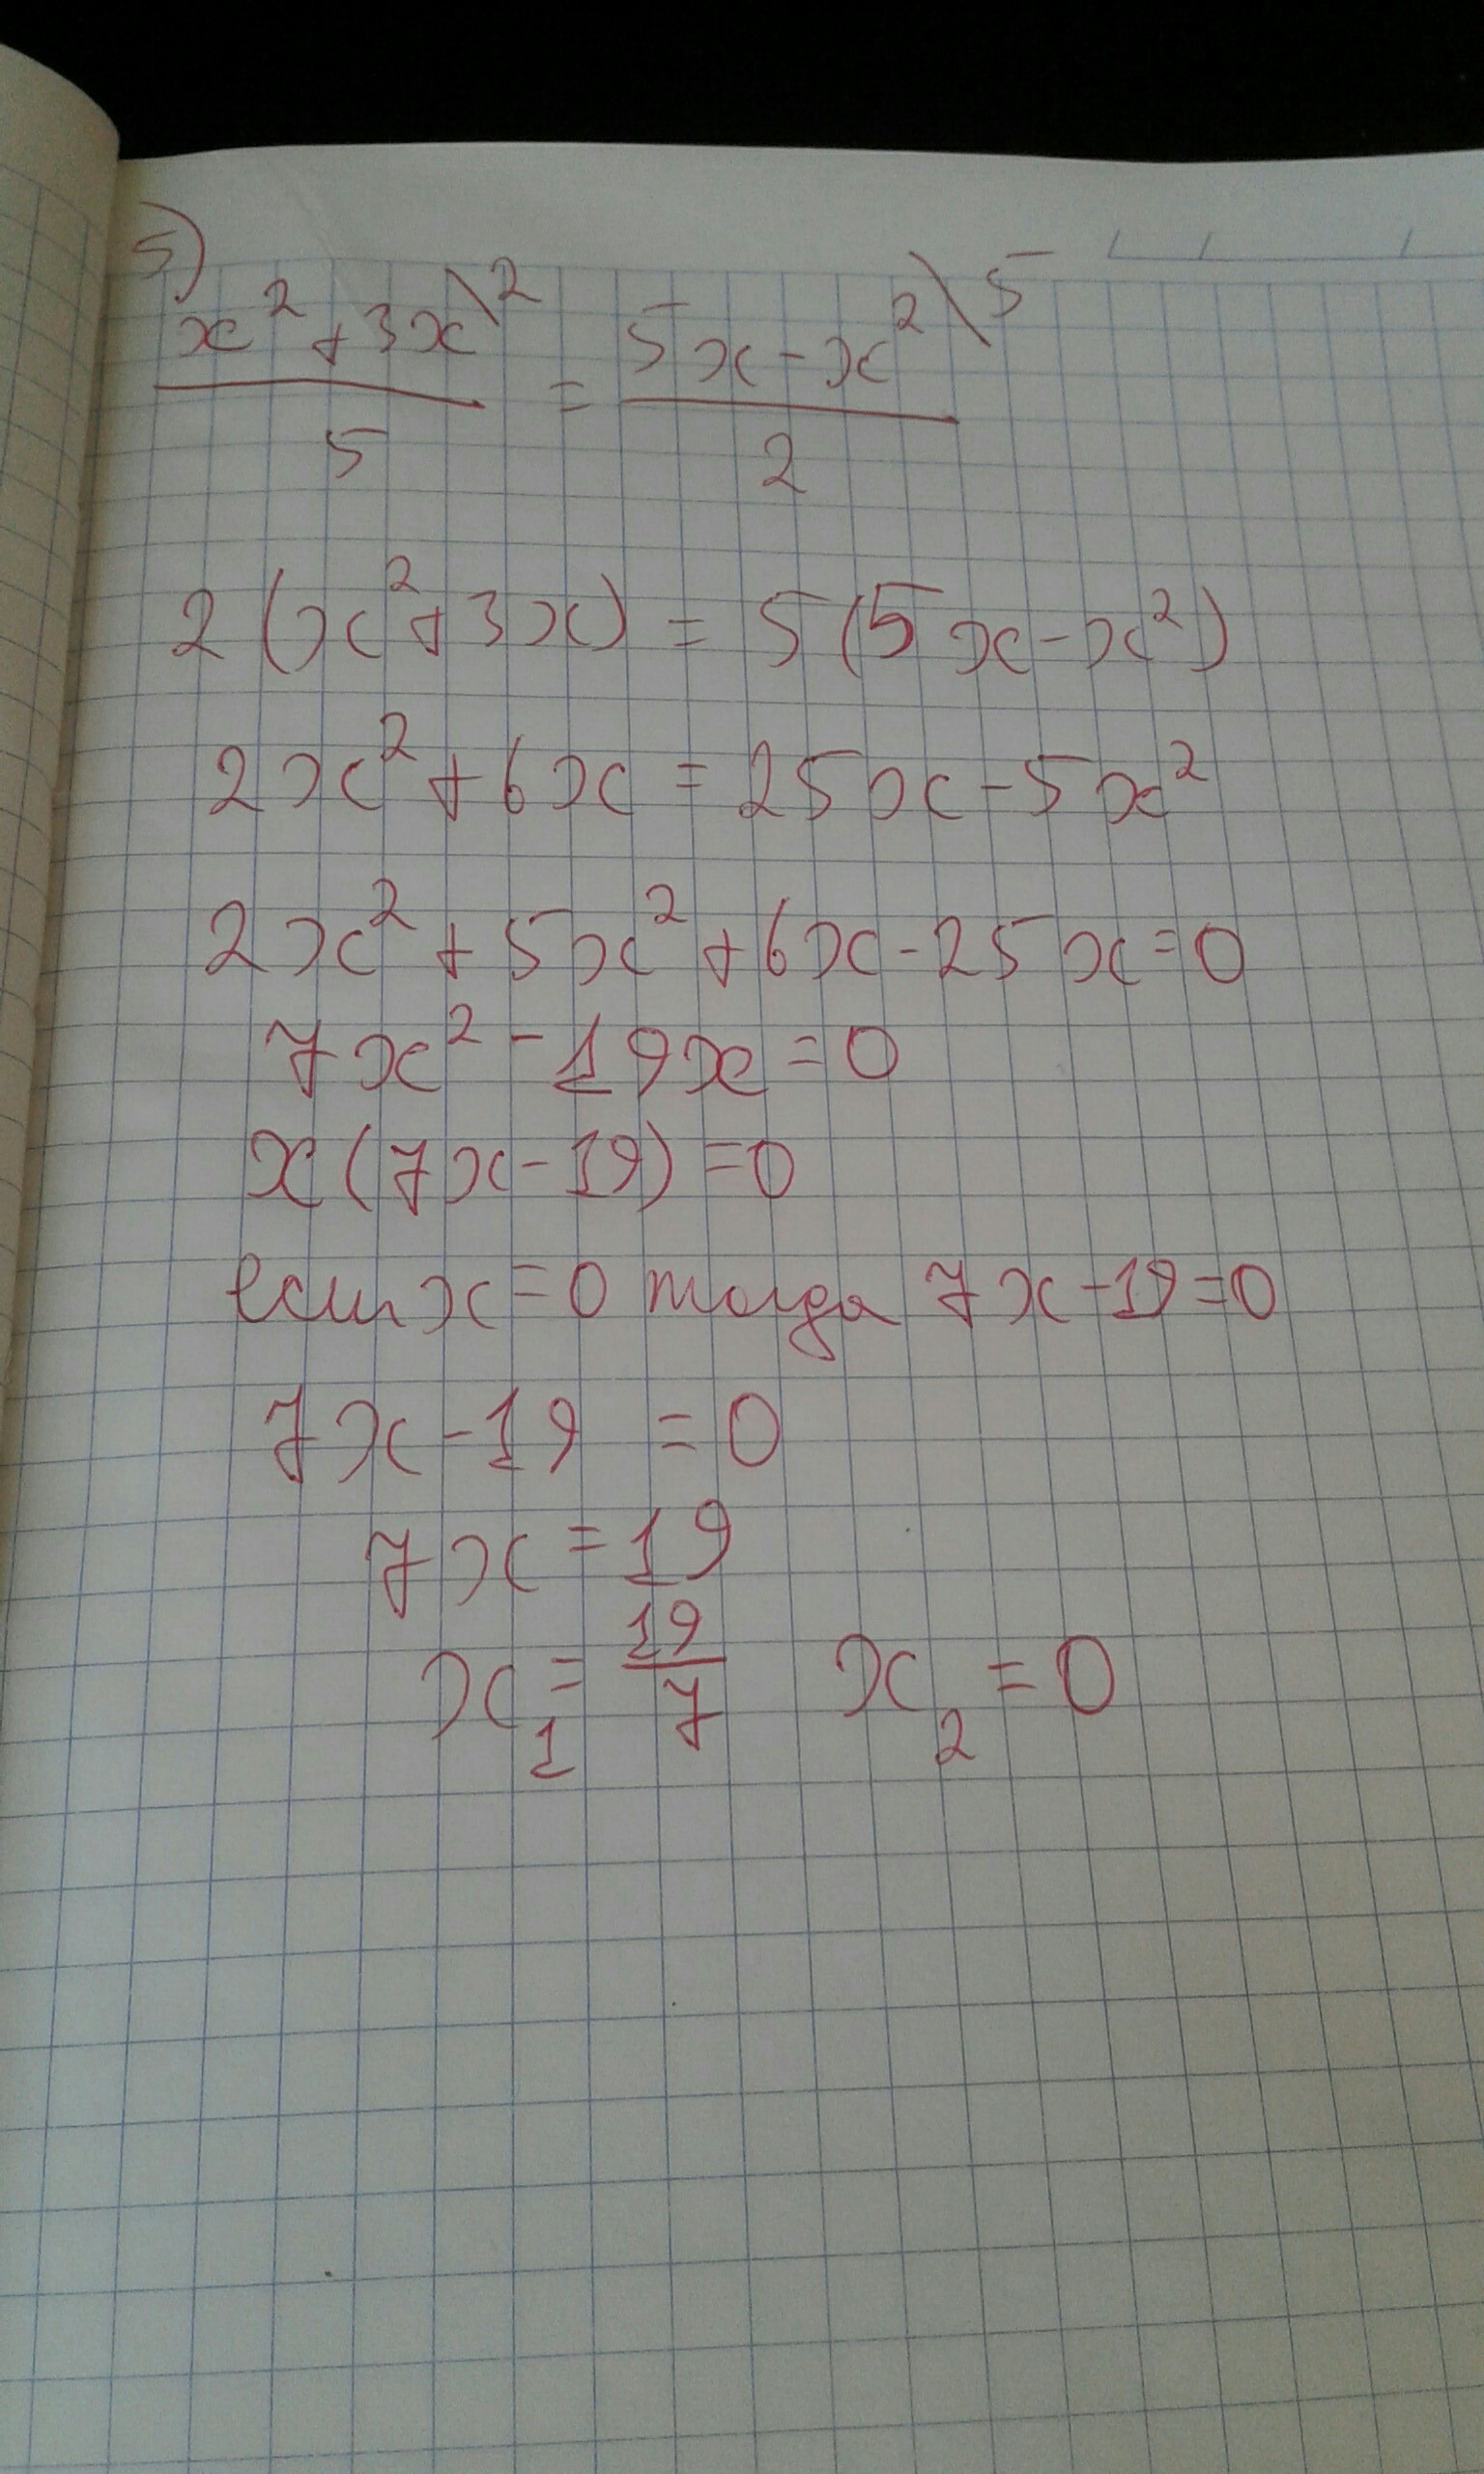 5)
x² + 3x\2 / 5 = 5x - x²\5 / 2
2 (x² + 3x) = 5 (5x - x²)
2x² + 6x = 25x - 5x²
2x² + 5x² + 6x - 25x = 0
7x² - 19x = 0
x (7x - 19) = 0
если x = 0 тогда 7x - 19 = 0
7x - 19 = 0
7x = 19
x₁ = 19/7 x₂ = 0